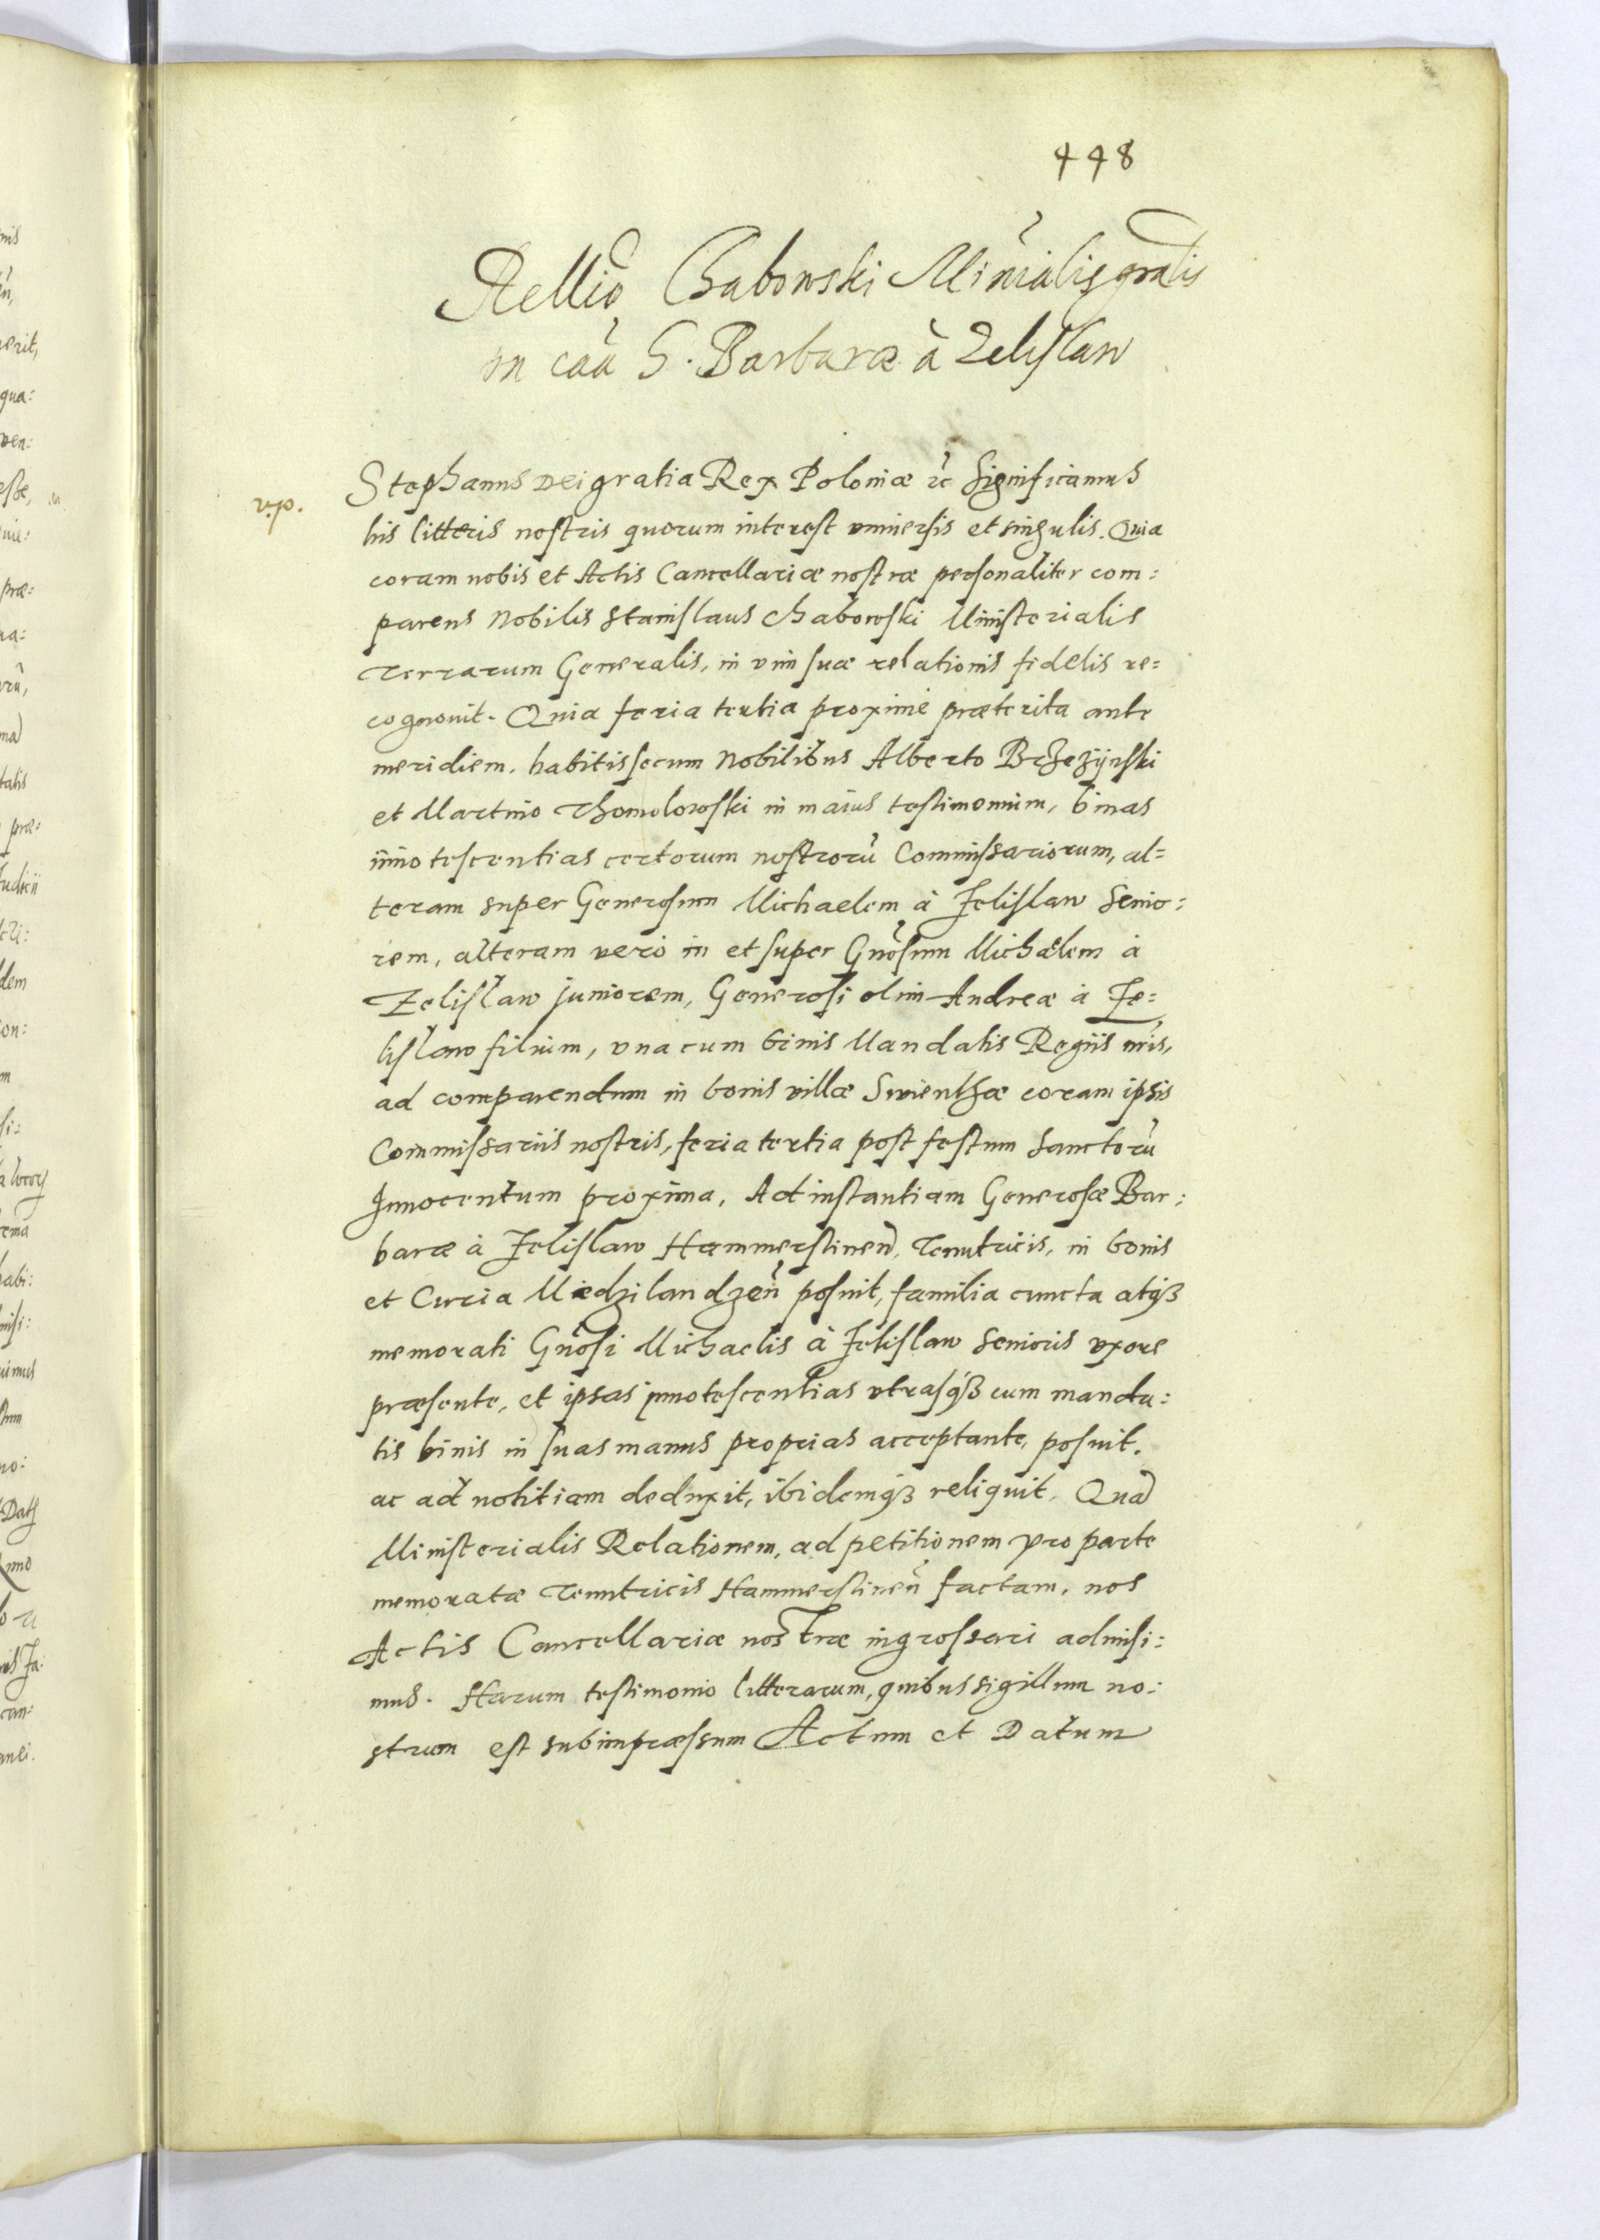 448
Rellio Chabowski Minialis gnalis
in caa G. Barbaræ à Zelislaw
v.p.
Stephanus Dei gratia Rex Poloniæ &c Significamus
his litteris nostris quorum interest uniuersis et singulis. Quia
coram nobis et Actis Cancellariæ nostræ personaliter com:
parens Nobilis Stanislaus Chabowski Ministerialis
Terrarum Generalis, in vim suæ relationis fidelis re=
cognouit. Quia feria tertia proxime præterita ante
meridiem. habitis secum Nobilibus Alberto Brzezÿnski
et Martino Thomolowski in maius testimonium, binas
innotescentias certorum nostrorũ Commissariorum, al=
teram super Generosum Michaelem à Zelislaw Senio:
rem, alteram verò in et super Gnosum Michaelem à
Zelislaw juniorem, Generosi olim Andreæ à Ze=
lislaw filium, vna cum binis Mandatis Regiis nris,
ad comparendum in bonis villæ Swienthæ coram ipsis
Commissariis nostris, feria tertia post festum Sanctorũ
Innocentum proxima. Ad instantiam Generosæ Bar:
baræ à Zelislaw Hammerstinen, Tenutricis, in bonis
et Curia Miedzilandzen posuit, familia cuncta atq3
memorati Gnosi Michaelis à Zelislaw Senioris vxore
præsente, et ipsas innotescentias vtrasq3 cum manda:
tis binis in suas manus proprias acceptante, posuit.
ac ad notitiam deduxit, ibidemq3 reliquit. Quã
Ministerialis Relationem, ad petitionem pro parte
memoratæ Tenutricis Hammerstinen factam, nos
Actis Cancellariæ nostræ ingrossari admisi:
mus. Harum testimonio litterarum, quibus sigillum no:
strum est subimpræssum Actum et Datum